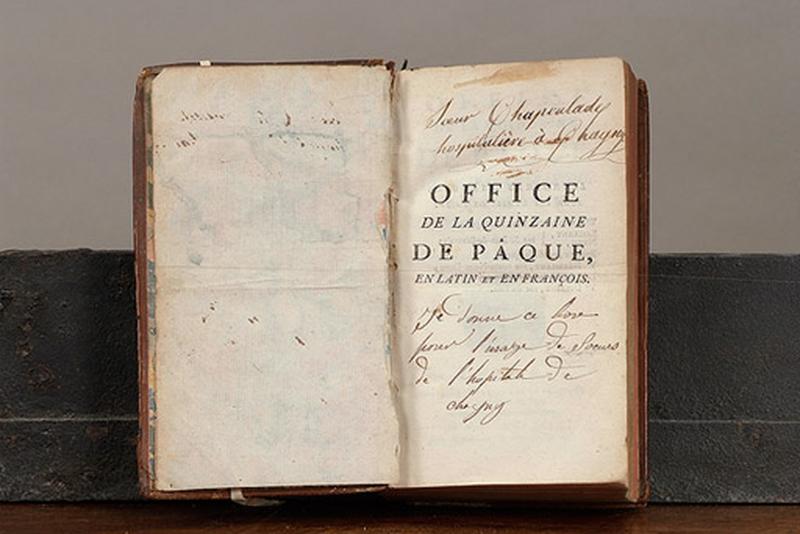 Sœur Chapoulady
hospitalière à Chagny
OFFICE
DE LA QUINZAINE
DE PÂQUE,
EN LATIN ET EN FRANÇOIS.
Je donne ce livre
pour l'usage de Soeurs
de l'hopital de
chagny